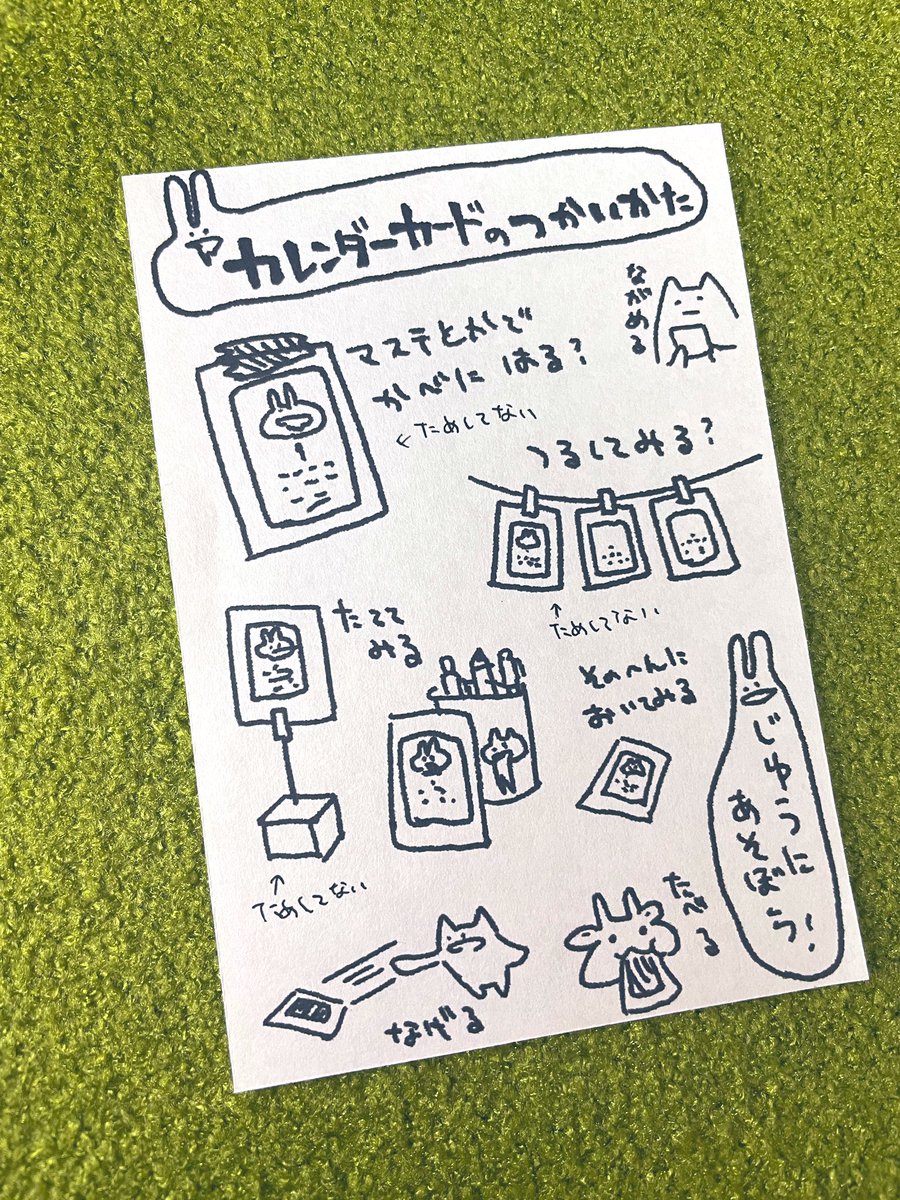 カレンダーカードのつかいかた
ながめる
マステとかで
かべに はる?
←ためしてない
つるしてみる?
↑
ためしてない
たてて
みる
↑
ためしてない
そのへんに
おいてみる
じゆうに
あそぼう!
なげる
たべる